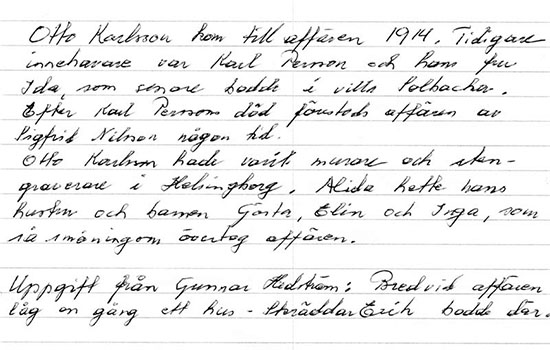 Otto Karlsson kom till affären 1914. Tidigare
innehavare var Karl Persson och hans fru
Ida, som senare bodde i villa Solbacka.
Efter Karl Perssons död förestods affären av
Sigfrid Nilsson någon tid.
Otto Karlsson hade varit murare och sten-
graverare i Helsingborg. Alida hette hans
hustru och barnen Gösta, Elin och Inga, som
så småningom övertog affären.
Uppgift från Gunnar Hedström: Bredvid affären
låg en gång ett hus - Skräddar Erik bodde där.